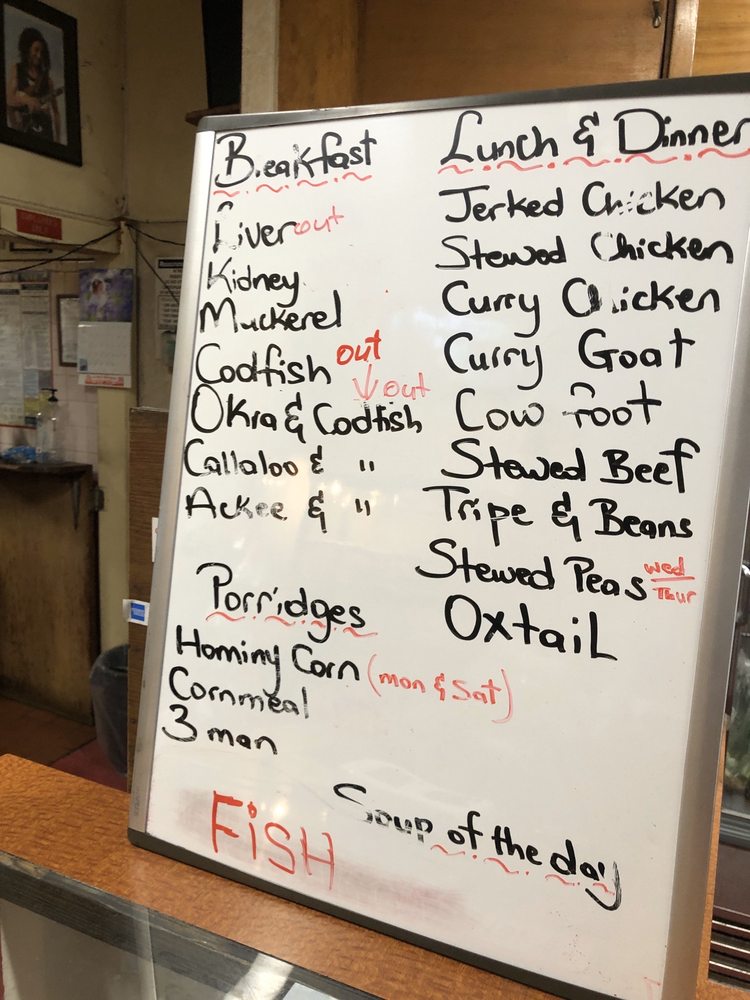 Breakfast
Liver out
Kidney
Muckerel
Codfish out
out
Okra & Codfish
Callaloo & "
Ackee & "
Porridges
Hominy Corn (mon & Sat)
Cornmeal
3 man
FiSH
Lunch & Dinner
Jerked Chicken
Stewed Chicken
Curry Chicken
Curry Goat
Cow foot
Stewed Beef
Tripe & Beans
Stewed Peas wed
Thur
Oxtail
Soup of the day